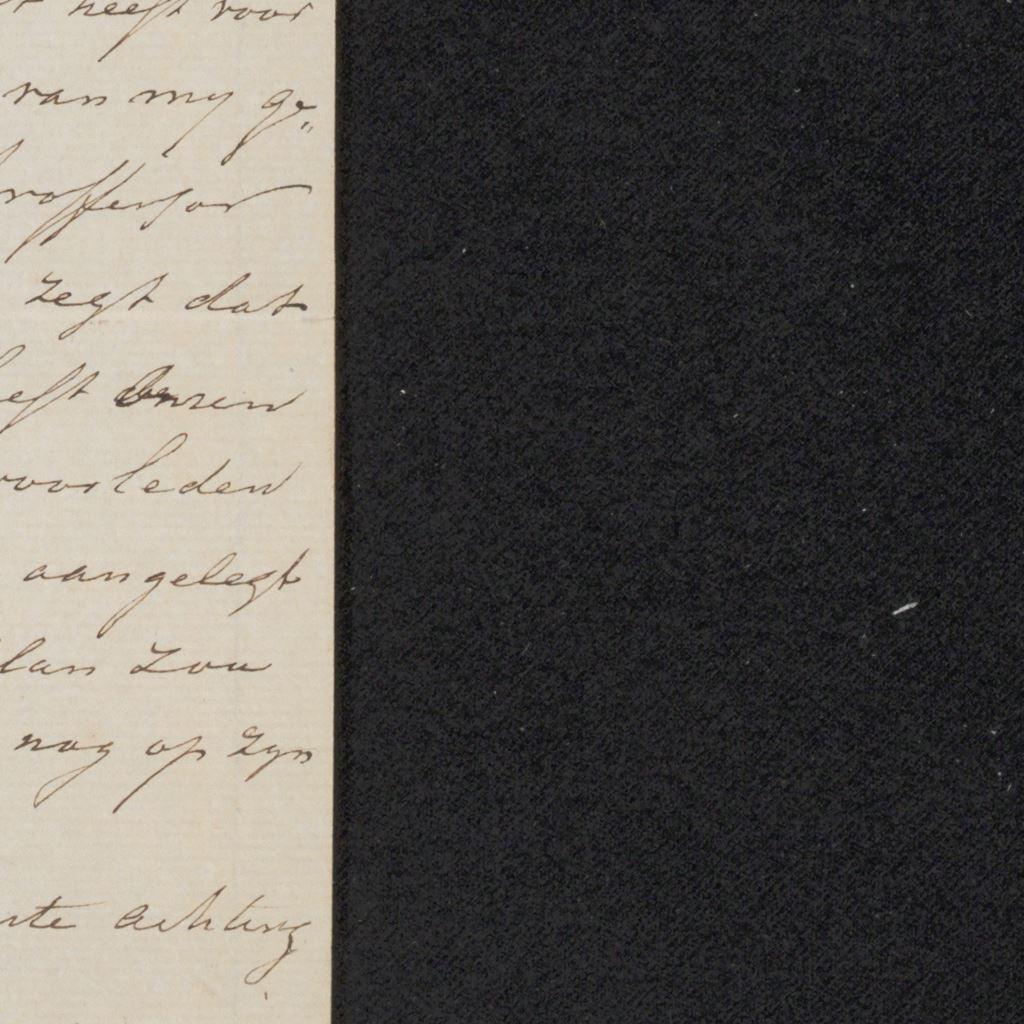 heeft voor
van my ge„
roffessor
zegt dat
eeft onzen
voorleden
aangelegt
lan zou
nog op zyn
ste achting